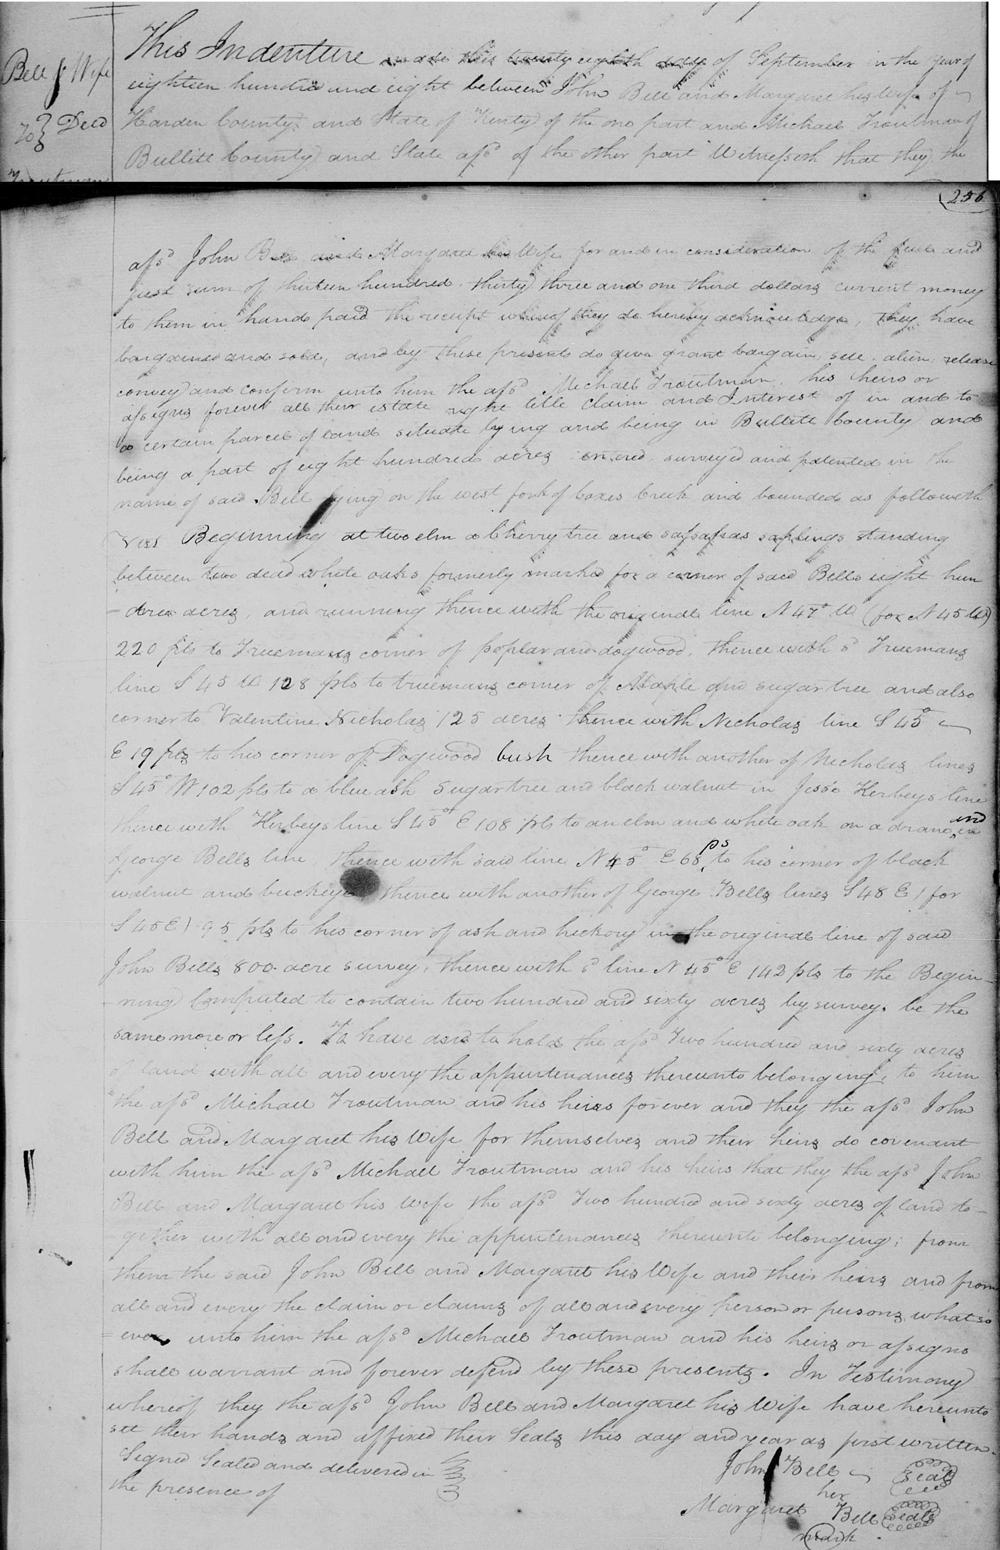 Bell & Wife
To } Deed
Troutman
This Indenture made this twenty eighth day of September in the year of
eighteen hundred and eight between John Bell and Margaret his Wife of
Harden County and State of Kenty of the one part and Michael Troutman of
Bullitt County and State afsd of the other part Witnesseth that they the
256
afsd John Bell and Margaret his Wife for and in consideration of the full and
just sum of thirteen hundred thirty three and one third dollars current money
to them in hand paid the receipt whereof they do hereby acknowledge, they have
bargained and sold, and by these presents do give grant bargain sell alien release
convey and confirm unto him the afsd Michael Troutman his heirs or
assigns forever all their estate right title claim and Interest of in and to
a certain parcel of land situate lying and being in Bullitt County and
being a part of eight hundred acres entered surveyed and patented in the
name of said Bell lying on the west fork of Coxes Creek and bounded as followeth
Viss Beginning at two elm a Cherry tree and safsafsas saplings standing
between two dead white oaks formerly marked for a corner of said Bells eight hun
-dred acres, and running thence with the original line N 47° W (for N 45 W)
220 pls to Truemans corner of poplar and dogwood, thence with sd Truemans
line S 45 W 128 pls to truemans corner of Maple and sugar tree and also
corner to Valentine Nicholas 125 acres thence with Nicholas line S 45°
E 19 pls to his corner of Dogwood bush thence with another of Nicholas lines
S 45° W 102 pls to a blue ash Sugar tree and black walnut in Jesse Herbeys line
thence with Herbeys line S 45° E 108 pls to an elm and white oak on a drane and in
George Bells line thence with said line N 45° E 68 ps to his corner of black
walnut and buckeye thence with another of George Bells lines S 48 E (for
S 45 E) 95 pls to his corner of ash and hickory in the original line of said
John Bells 800 acre survey, thence with sd line N 45° E 142 pls to the Begin-
-ning Computed to contain two hundred and sixty acres by survey be the
same more or less. To have and to hold the afsd Two hundred and sixty acres
of land with all and every the appurtenances thereunto belonging, to him
the afsd Michael Troutman and his heirs forever and they the afsd John
Bell and Margaret his Wife for themselves and their heirs do covenant
with him the afsd Michael Troutman and his heirs that they the afsd John
Bell and Margaret his Wife the afsd Two hundred and sixty acres of land to-
-gether with all and every the appurtenances thereunto belonging; from
them the said John Bell and Margaret his Wife and their heirs and from
all and every the claim or claims of all and every person or persons what so
=ever unto him the afsd Michael Troutman and his heirs or assigns
shall warrant and forever defend by these presents. In Testimony
whereof they the afsd John Bell and Margaret his Wife have hereunto
set their hands and affixed their Seals this day and year as first written.
Signed Sealed and delivered in
the presence of
John Bell seal
her
Margaret Bell seal
mark